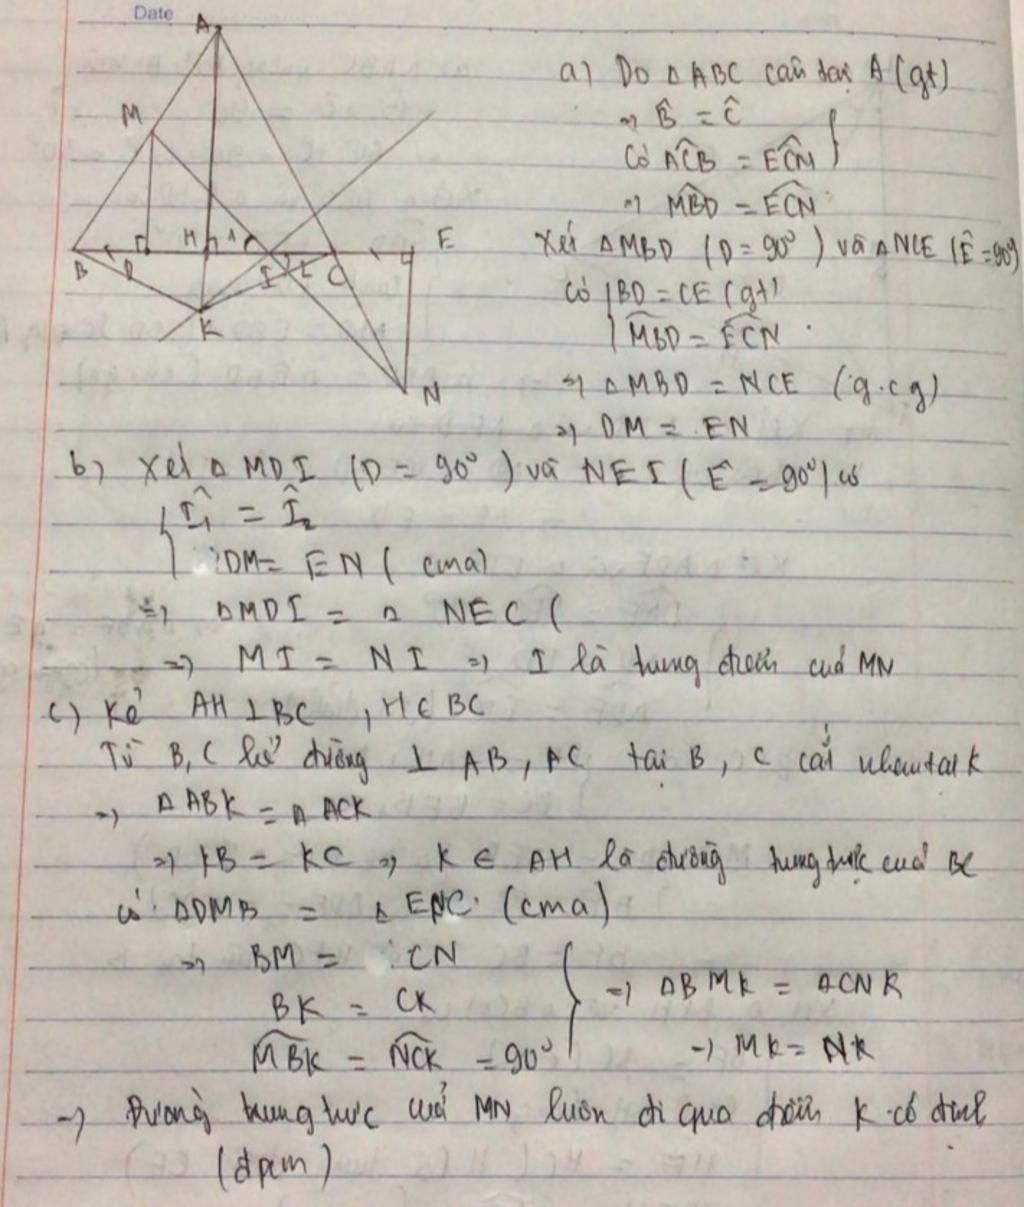 Date
A
M
H 1
E
B D I 2 C
K
N
a) Do △ABC cân tại A (gt)
=> B̂ = Ĉ
Có ACB = ECN
=> MBD = ECN
Xét △MBD (D = 90°) và △NCE (Ê = 90°)
Có BD = CE (gt)
MBD = ECN
=> △MBD = NCE (g.c g)
=> DM = EN
b) Xét △ MDI (D = 90°) và NEI (Ê = 90°) có
Î₁ = Î₂
DM = EN ( cma)
=> △MDI = △ NEC (
=> MI = NI => I là trung điểm của MN
c) Kẻ AH ⊥ BC , H ∈ BC
Từ B, C kẻ đường ⊥ AB, AC tại B, C cắt nhau tại K
=> △ABK = △ ACK
=> KB = KC => K ∈ AH là đường trung trực của BC
có △DMB = △ ENC (cma)
=> BM = CN
BK = CK
=> △BMK = △CNK
MBK = NCK = 90°
=> MK = NK
=> Đường trung trực của MN luôn đi qua điểm K cố định
(đpcm)